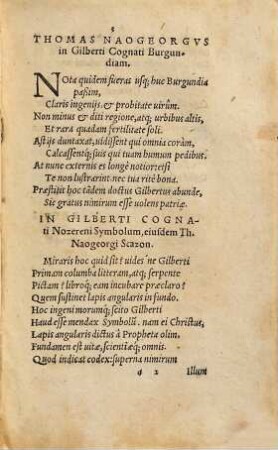 THOMAS NAOGEORGVS
in Gilberti Cognati Burgun-
diam.
NOta quidem fueras usq; huc Burgundia
paßim,
Claris ingenijs & probitate uirûm.
Non minus & diti regione, atq; urbibus altis,
Et rara quadam fertilitate soli.
Ast ijs duntaxat, uidissent qui omnia coràm,
Calcassentq́; suis qui tuam humum pedibus.
At nunc externis es longè notior: etsi
Te non lustrarint. nec tua ritè bona.
Præstitit hoc tãdem doctus Gilbertus abunde,
Sic gratus nimirum esse uolens patriæ.
IN GILBERTI COGNA-
ti Nozereni Symbolum, eiusdem Th.
Naogeorgi Scazon.
Miraris hoc quid sit? uides'ne Gilberti
Primam columba litteram, atq; serpente
Pictam? libroq́; eam incubare præclaro?
Quem sustinet lapis angularis in fundo.
Hoc ingeni morumq́; scito Gilberti
Haud esse mendax Symbolũ. nam ei Christus,
Lapis angularis dictus à Propheta olim.
Fundamen est uitæ, scientiæq́; omnis.
Quod indicat codex: superna nimirum
d 2 Illum